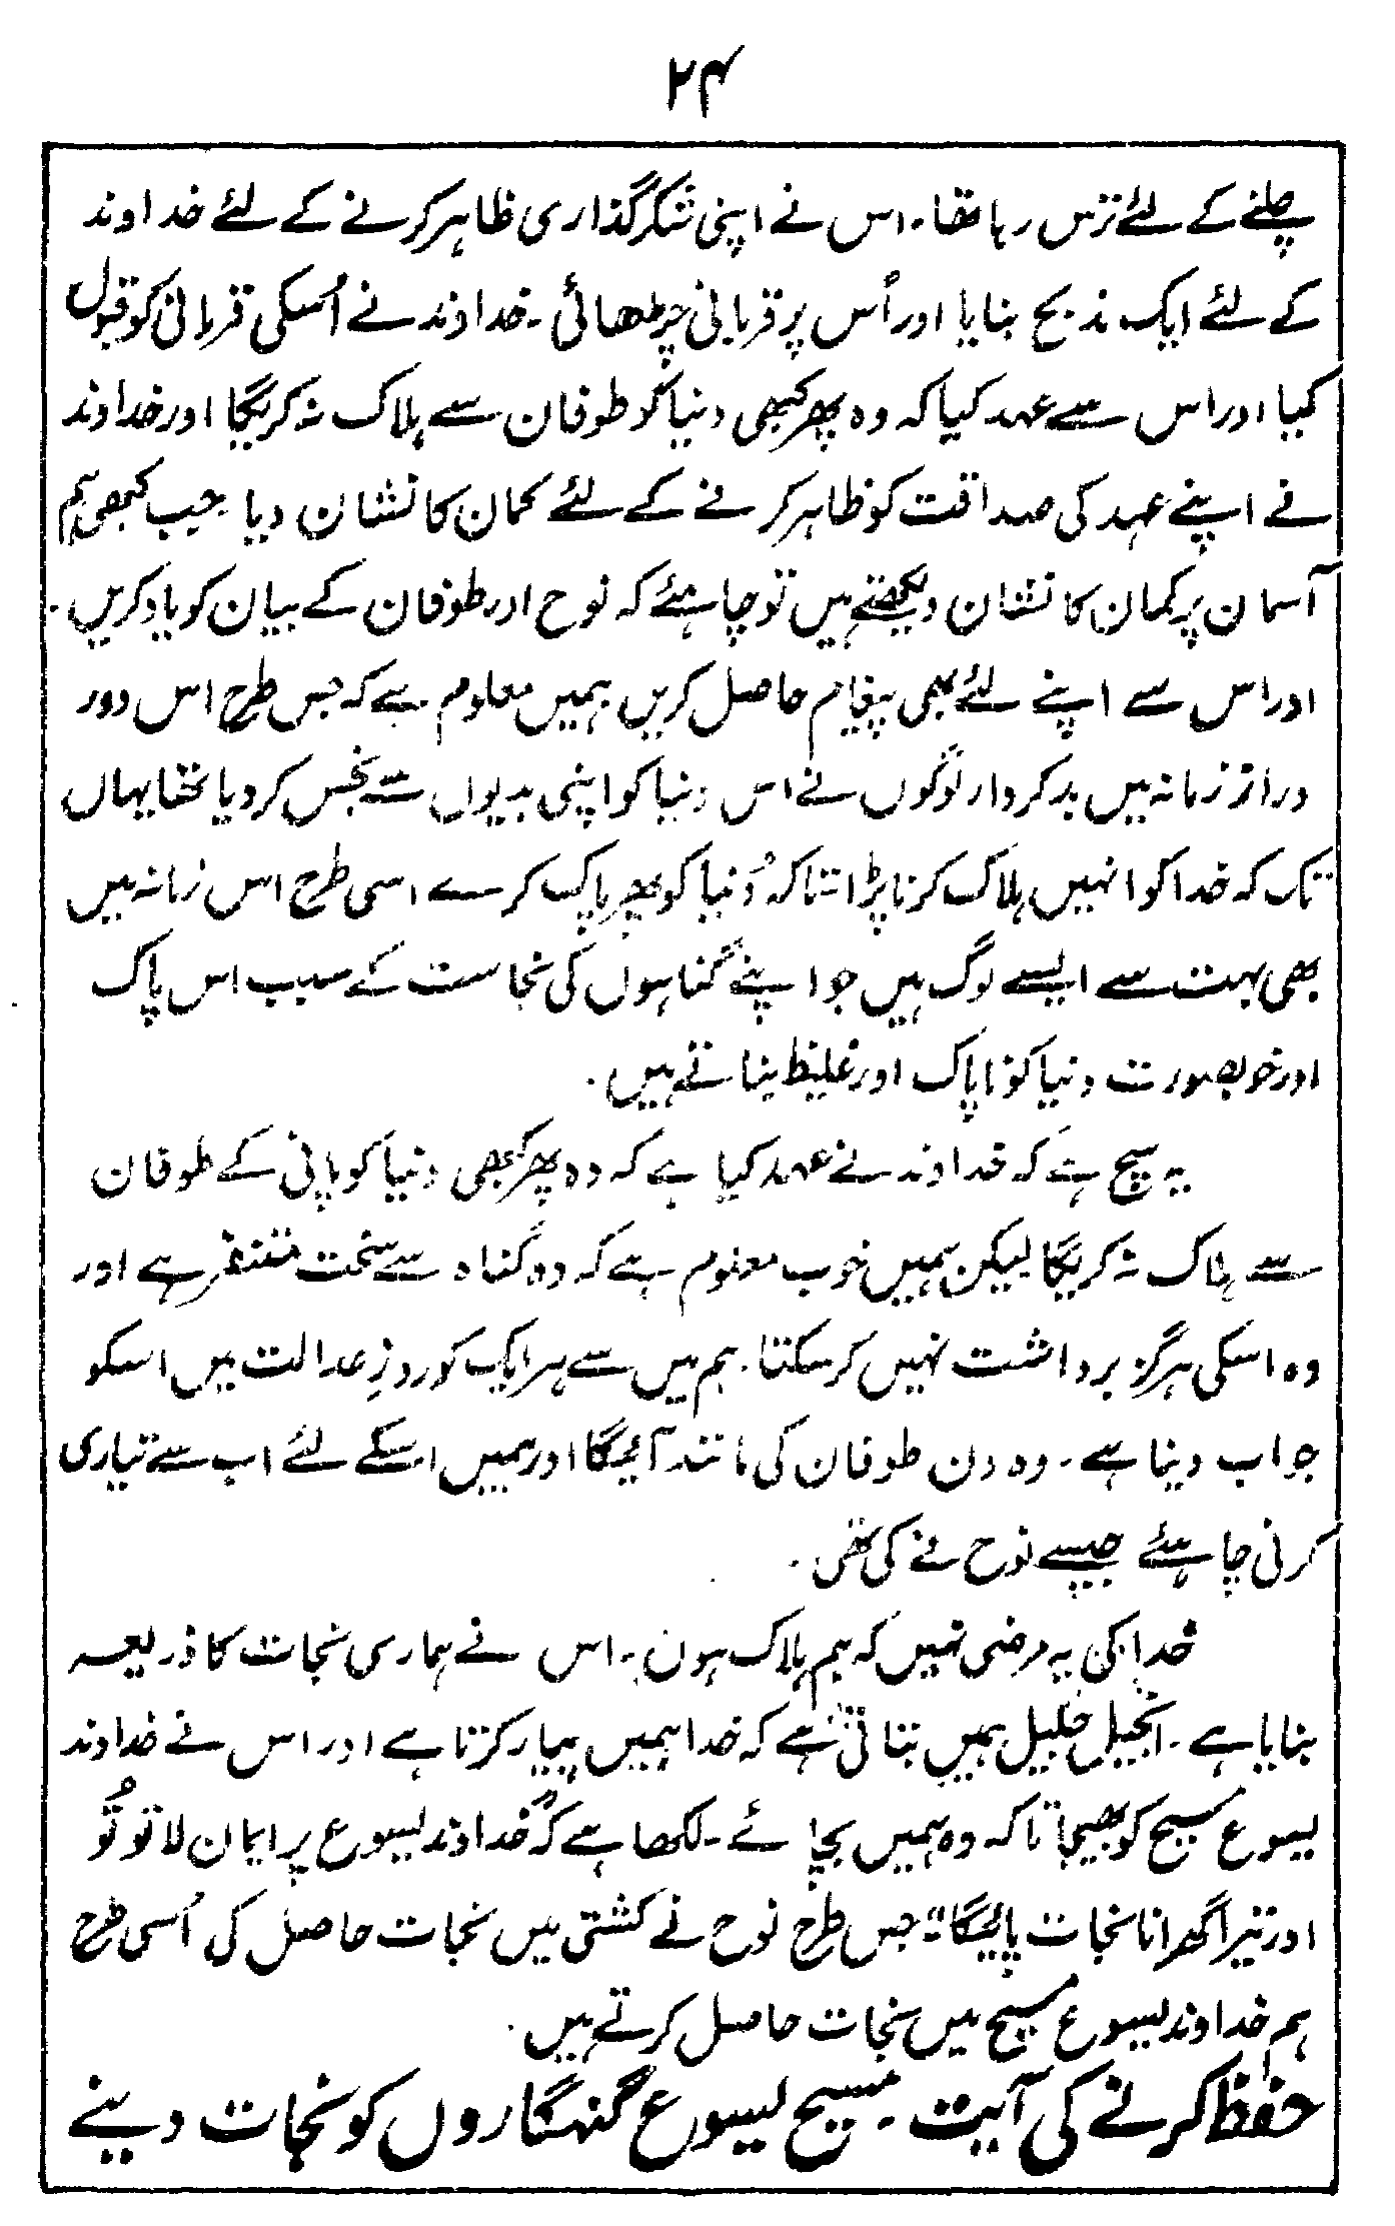 ۲۴
چلنے کے لئے ترس رہا تھا۔ اس نے اپنی شکرگذاری ظاہر کرنے کے لئے خداوند
کے لئے ایک مذبح بنایا اور اُس پر قربانی چڑھائی۔ خداوند نے اُسکی قربانی کو قبول
کیا اور اس سے عہد کیا کہ وہ پھر کبھی دنیا کو طوفان سے ہلاک نہ کریگا اور خداوند
نے اپنے عہد کی صداقت کو ظاہر کرنے کے لئے کمان کا نشان دیا جب کبھی ہم
آسمان پر کمان کا نشان دیکھتے ہیں تو چاہئے کہ نوح اور طوفان کے بیان کو یاد کریں۔
اور اس سے اپنے لئے بھی پیغام حاصل کریں ہمیں معلوم ہے کہ جس طرح اس دور
دراز زمانہ میں بدکردار لوگوں نے اس دنیا کو اپنی بدیوں سے نجس کر دیا تھا یہاں
تک کہ خدا کو انہیں ہلاک کرنا پڑا تاکہ دُنیا کو پھر پاک کرے اسی طرح اس زمانہ میں
بھی بہت سے ایسے لوگ ہیں جو اپنے گناہوں کی نجاست کے سبب اس پاک
اور خوبصورت دنیا کو ناپاک اور غلیظ بناتے ہیں۔
یہ سچ ہے کہ خداوند نے عہد کیا ہے کہ وہ پھر کبھی دنیا کو پانی کے طوفان
سے ہلاک نہ کریگا لیکن ہمیں خوب معلوم ہے کہ وہ گناہ سے سخت متنفر ہے اور
وہ اسکی ہرگز برداشت نہیں کر سکتا۔ ہم میں سے ہر ایک کو روزِ عدالت میں اسکو
جواب دینا ہے۔ وہ دن طوفان کی مانند آئیگا اور ہمیں اسکے لئے اب سے تیاری
کرنی چاہئے جیسے نوح نے کی تھی۔
خدا کی یہ مرضی نہیں کہ ہم ہلاک ہوں۔ اس نے ہماری نجات کا ذریعہ
بنایا ہے۔ انجیل جلیل ہمیں بتاتی ہے کہ خدا ہمیں پیار کرتا ہے اور اس نے خداوند
یسوع مسیح کو بھیجا تاکہ وہ ہمیں بچائے۔ لکھا ہے کہ "خداوند یسوع پر ایمان لا تو تُو
اور تیرا گھرانا نجات پائیگا"۔ جس طرح نوح نے کشتی میں نجات حاصل کی اُسی طرح
ہم خداوند یسوع مسیح میں نجات حاصل کرتے ہیں۔
حفظ کرنے کی آیت۔ مسیح یسوع گنہگاروں کو نجات دینے